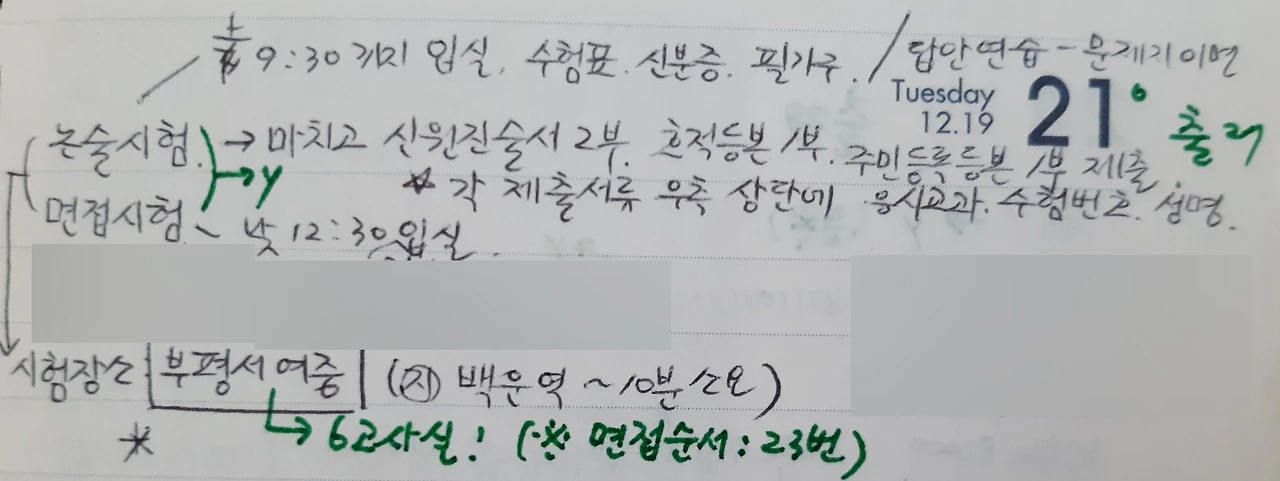 9:30까지 입실, 수험표. 신분증. 필기구. / 답안연습 - 문제지 이면
Tuesday 12.19 21
논술시험 → 마치고 신원진술서 2부. 호적등본 1부. 주민등록등본 1부 제출.
→ y * 각 제출서류 우측 상단에 응시교과. 수험번호. 성명.
면접시험 ~ 낮 12:30 입실.
시험장소 부평서여중 (지) 백운역 ~ 10분 소요)
* → 6고사실! (※ 면접순서: 23번)